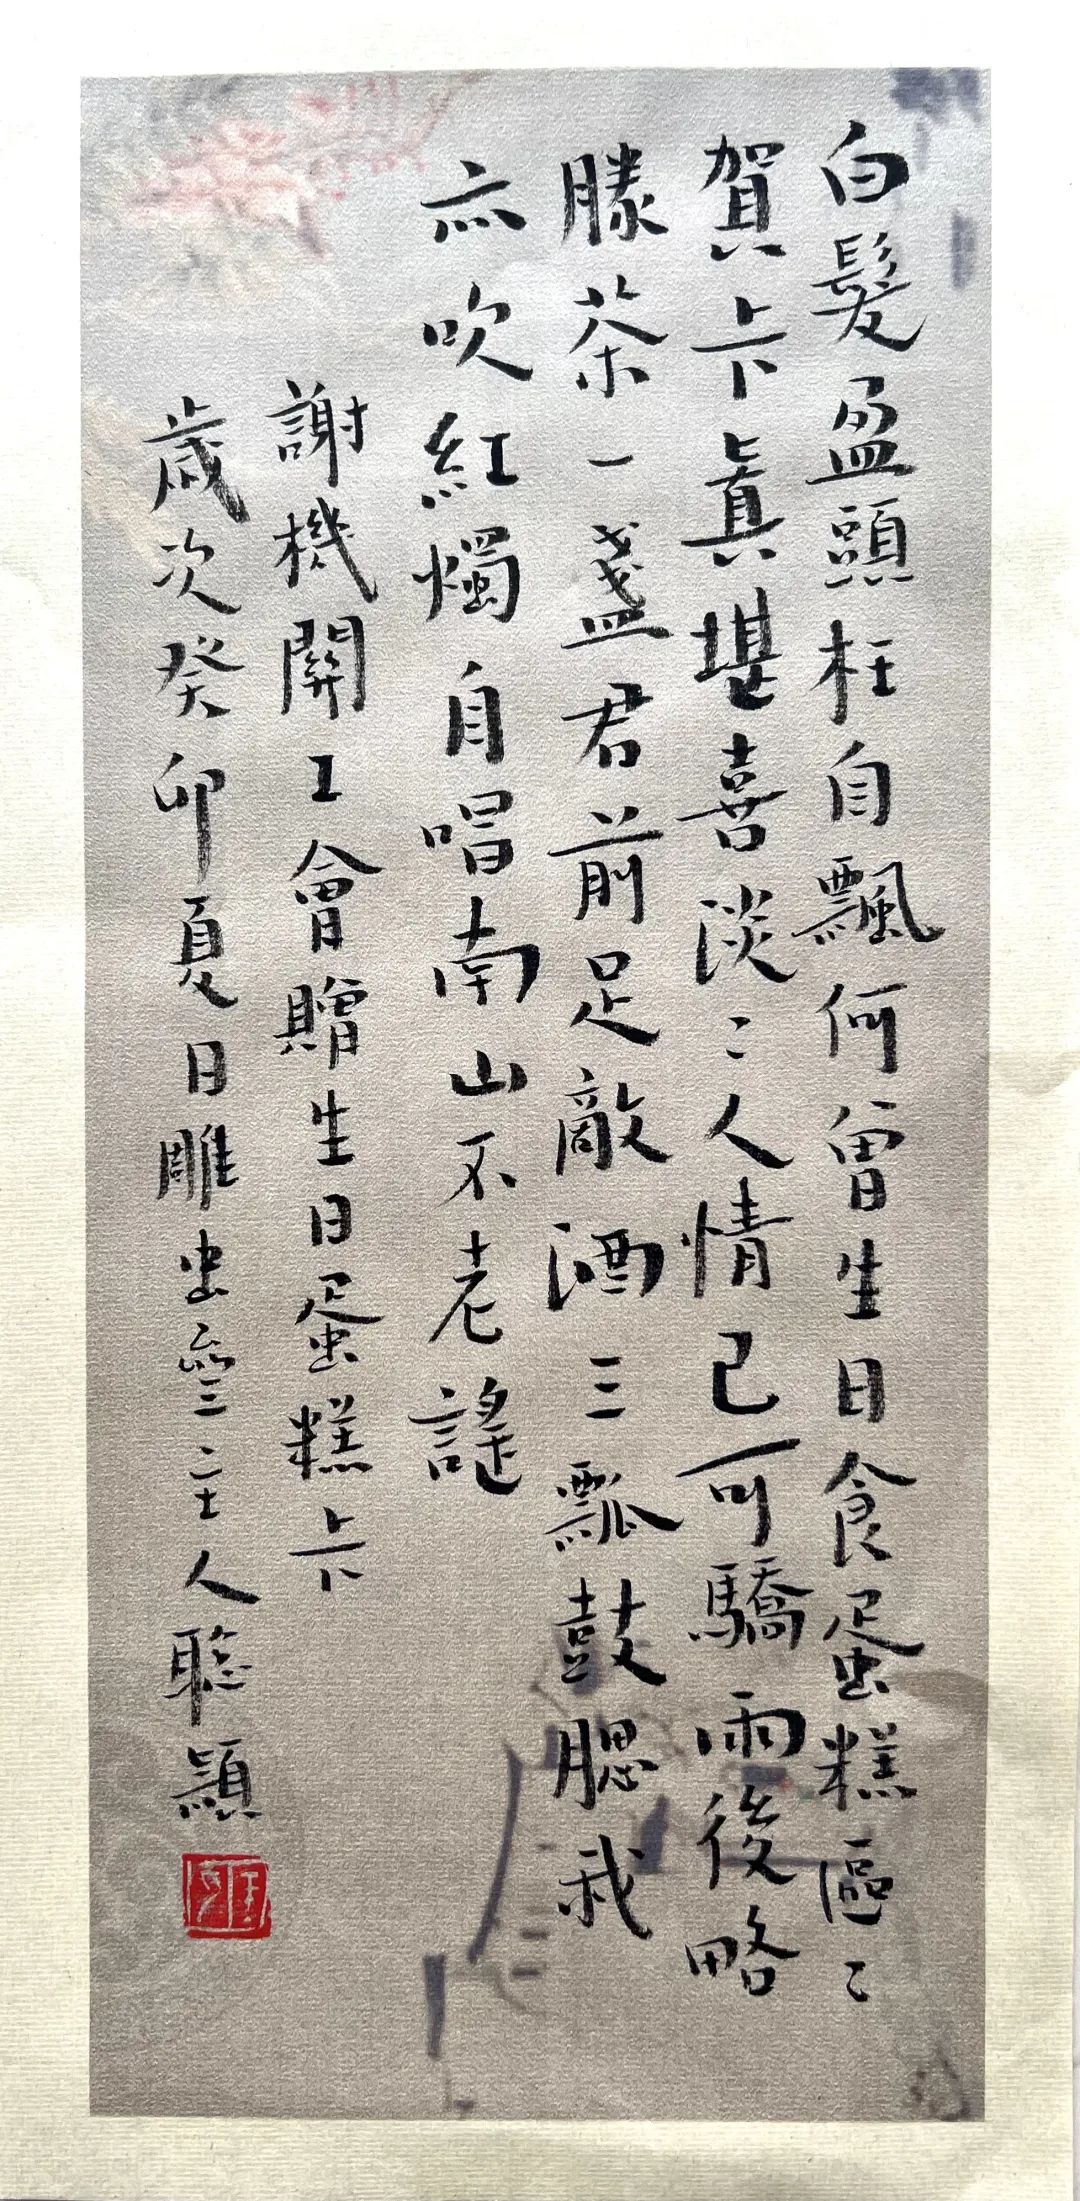 白髮盈頭枉自飄何曾生日食蛋糕區〻
賀卡真堪喜淡〻人情已可驕雨後略
賸茶一盞君前足敵酒三瓢鼓腮我
亦吹紅燭自唱南山不老謠
謝機關工會贈生日蛋糕卡
歲次癸卯夏日雕虫齋主人聰穎